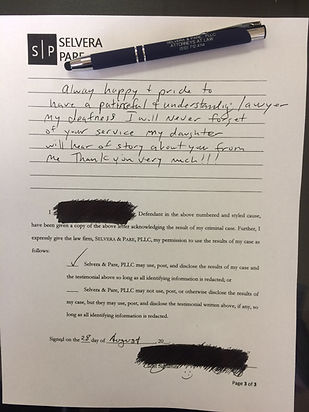 S|P SELVERA
PARE
SELVERA & PARE, PLLC
ATTORNEYS AT LAW
Alway happy & pride to
have a patienful & understandig lawyer
my deafness I will never forget
of your service my daughter
will hear of story about you from
me Thank you very much!!!
I, Defendant in the above numbered and styled cause,
have been given a copy of the above letter acknowledging the result of my criminal case. Further, I
expressly give the law firm, SELVERA & PARE, PLLC, my permission to use the results of my case as
follows:
Selvera & Pare, PLLC may use, post, and disclose the results of my case and
the testimonial above so long as all identifying information is redacted; or
Selvera & Pare, PLLC may not use, post, or otherwise disclose the results of
my case, but they may use, post, and disclose the testimonial written above, if any, so
long as all identifying information is redacted.
Signed on the 28 day of August, 20
Page 3 of 3